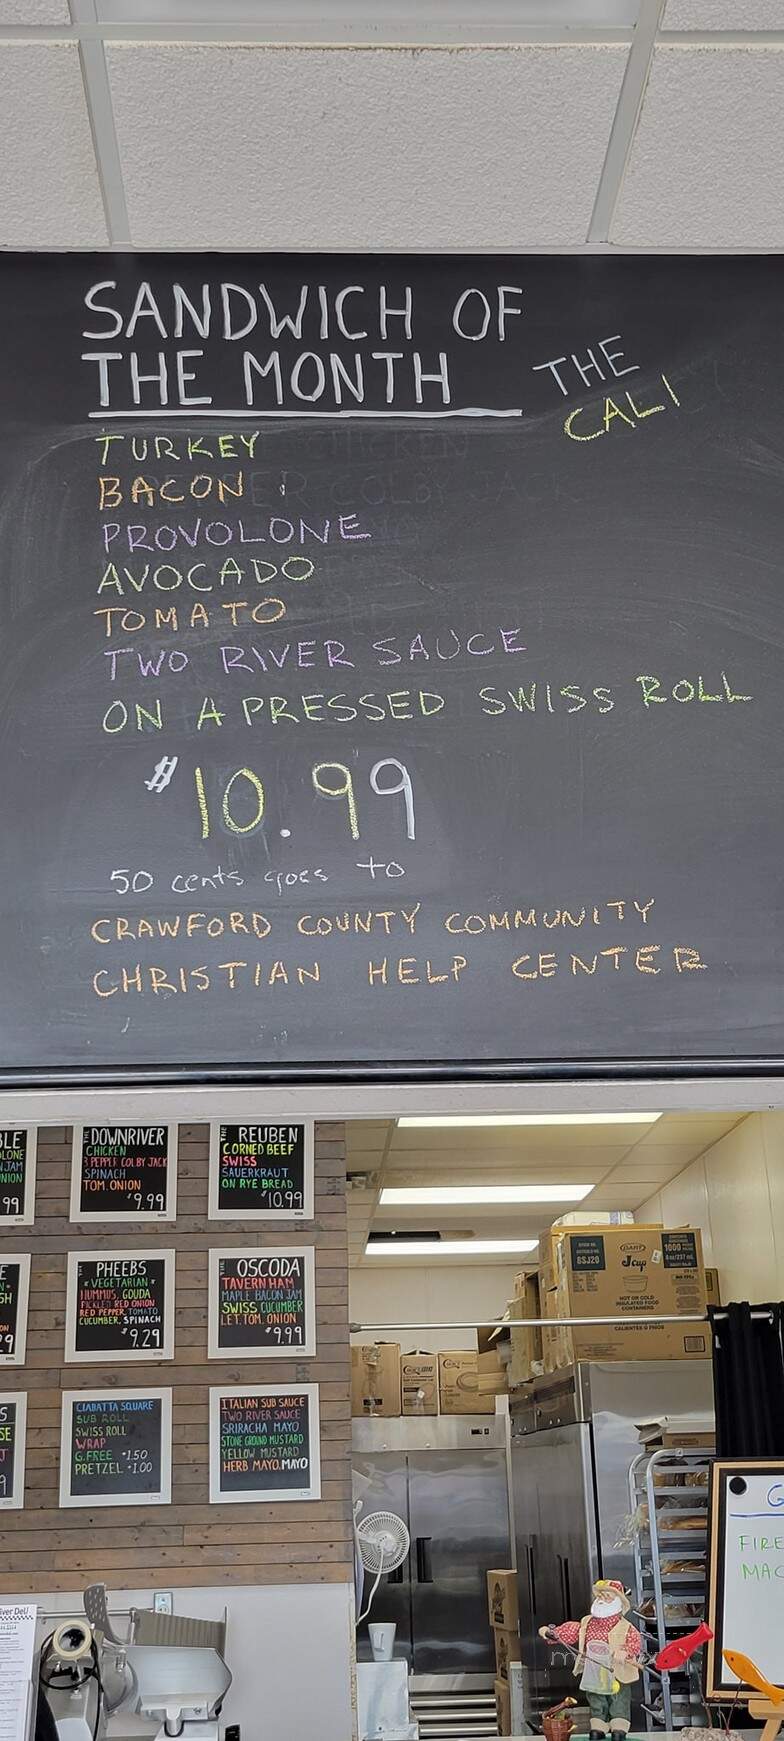 SANDWICH OF
THE MONTH
THE
CALI
TURKEY
BACON
PROVOLONE
AVOCADO
TOMATO
TWO RIVER SAUCE
ON A PRESSED SWISS ROLL
$10.99
50 cents goes to
CRAWFORD COUNTY COMMUNITY
CHRISTIAN HELP CENTER
THE DOWNRIVER
CHICKEN
3 PEPPER COLBY JACK
SPINACH
TOM. ONION
$9.99
THE REUBEN
CORNED BEEF
SWISS
SAUERKRAUT
ON RYE BREAD
$10.99
THE PHEEBS
*VEGETARIAN*
HUMMUS, GOUDA
PICKLED RED ONION
RED PEPPER, TOMATO
CUCUMBER, SPINACH
$9.29
THE OSCODA
TAVERN HAM
MAPLE BACON JAM
SWISS CUCUMBER
LET. TOM. ONION
$9.99
CIABATTA SQUARE
SUB ROLL
SWISS ROLL
WRAP
G.FREE +1.50
PRETZEL +1.00
ITALIAN SUB SAUCE
TWO RIVER SAUCE
SRIRACHA MAYO
STONE GROUND MUSTARD
YELLOW MUSTARD
HERB MAYO, MAYO
8SJ20
DART
J cup
1000
HOT OR COLD
INSULATED FOOD
CONTAINERS
FIRE
MAC